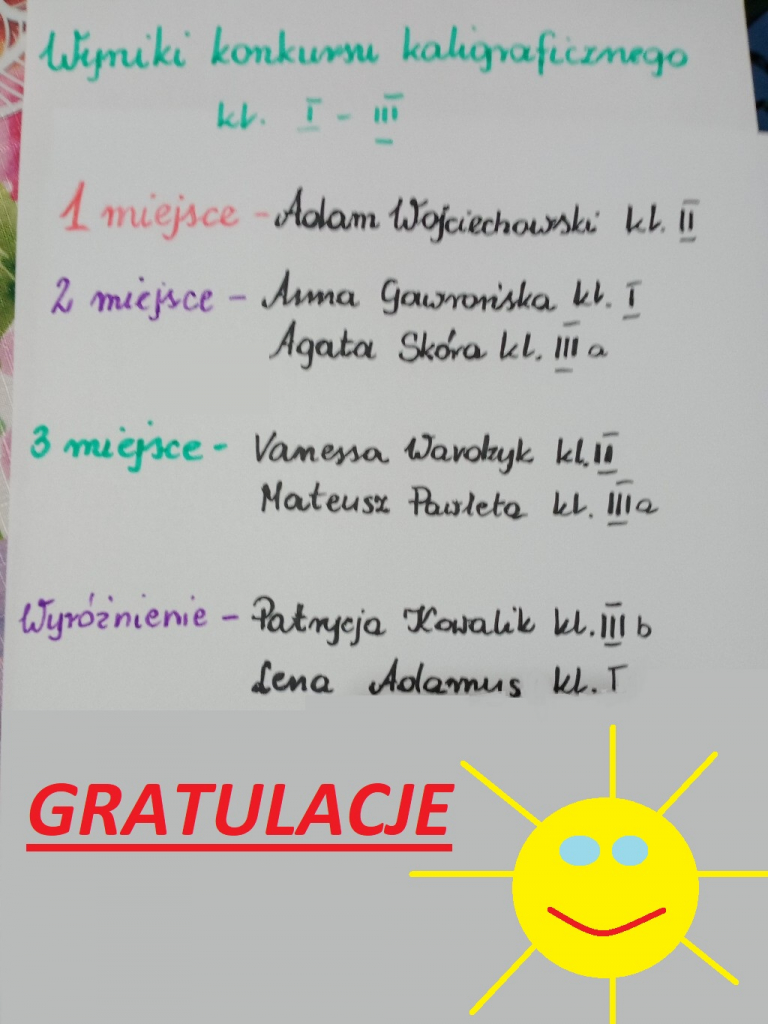 Wyniki konkursu kaligraficznego
kl. I - III
1 miejsce - Adam Wojciechowski kl. II
2 miejsce - Anna Gawrońska kl. I
Agata Skóra kl. III a
3 miejsce - Vanessa kl. II
Mateusz Pawleta kl. III a
Wyróżnienie - Patrycja Kowalik kl. III b
Lena Adamus kl. I
GRATULACJE